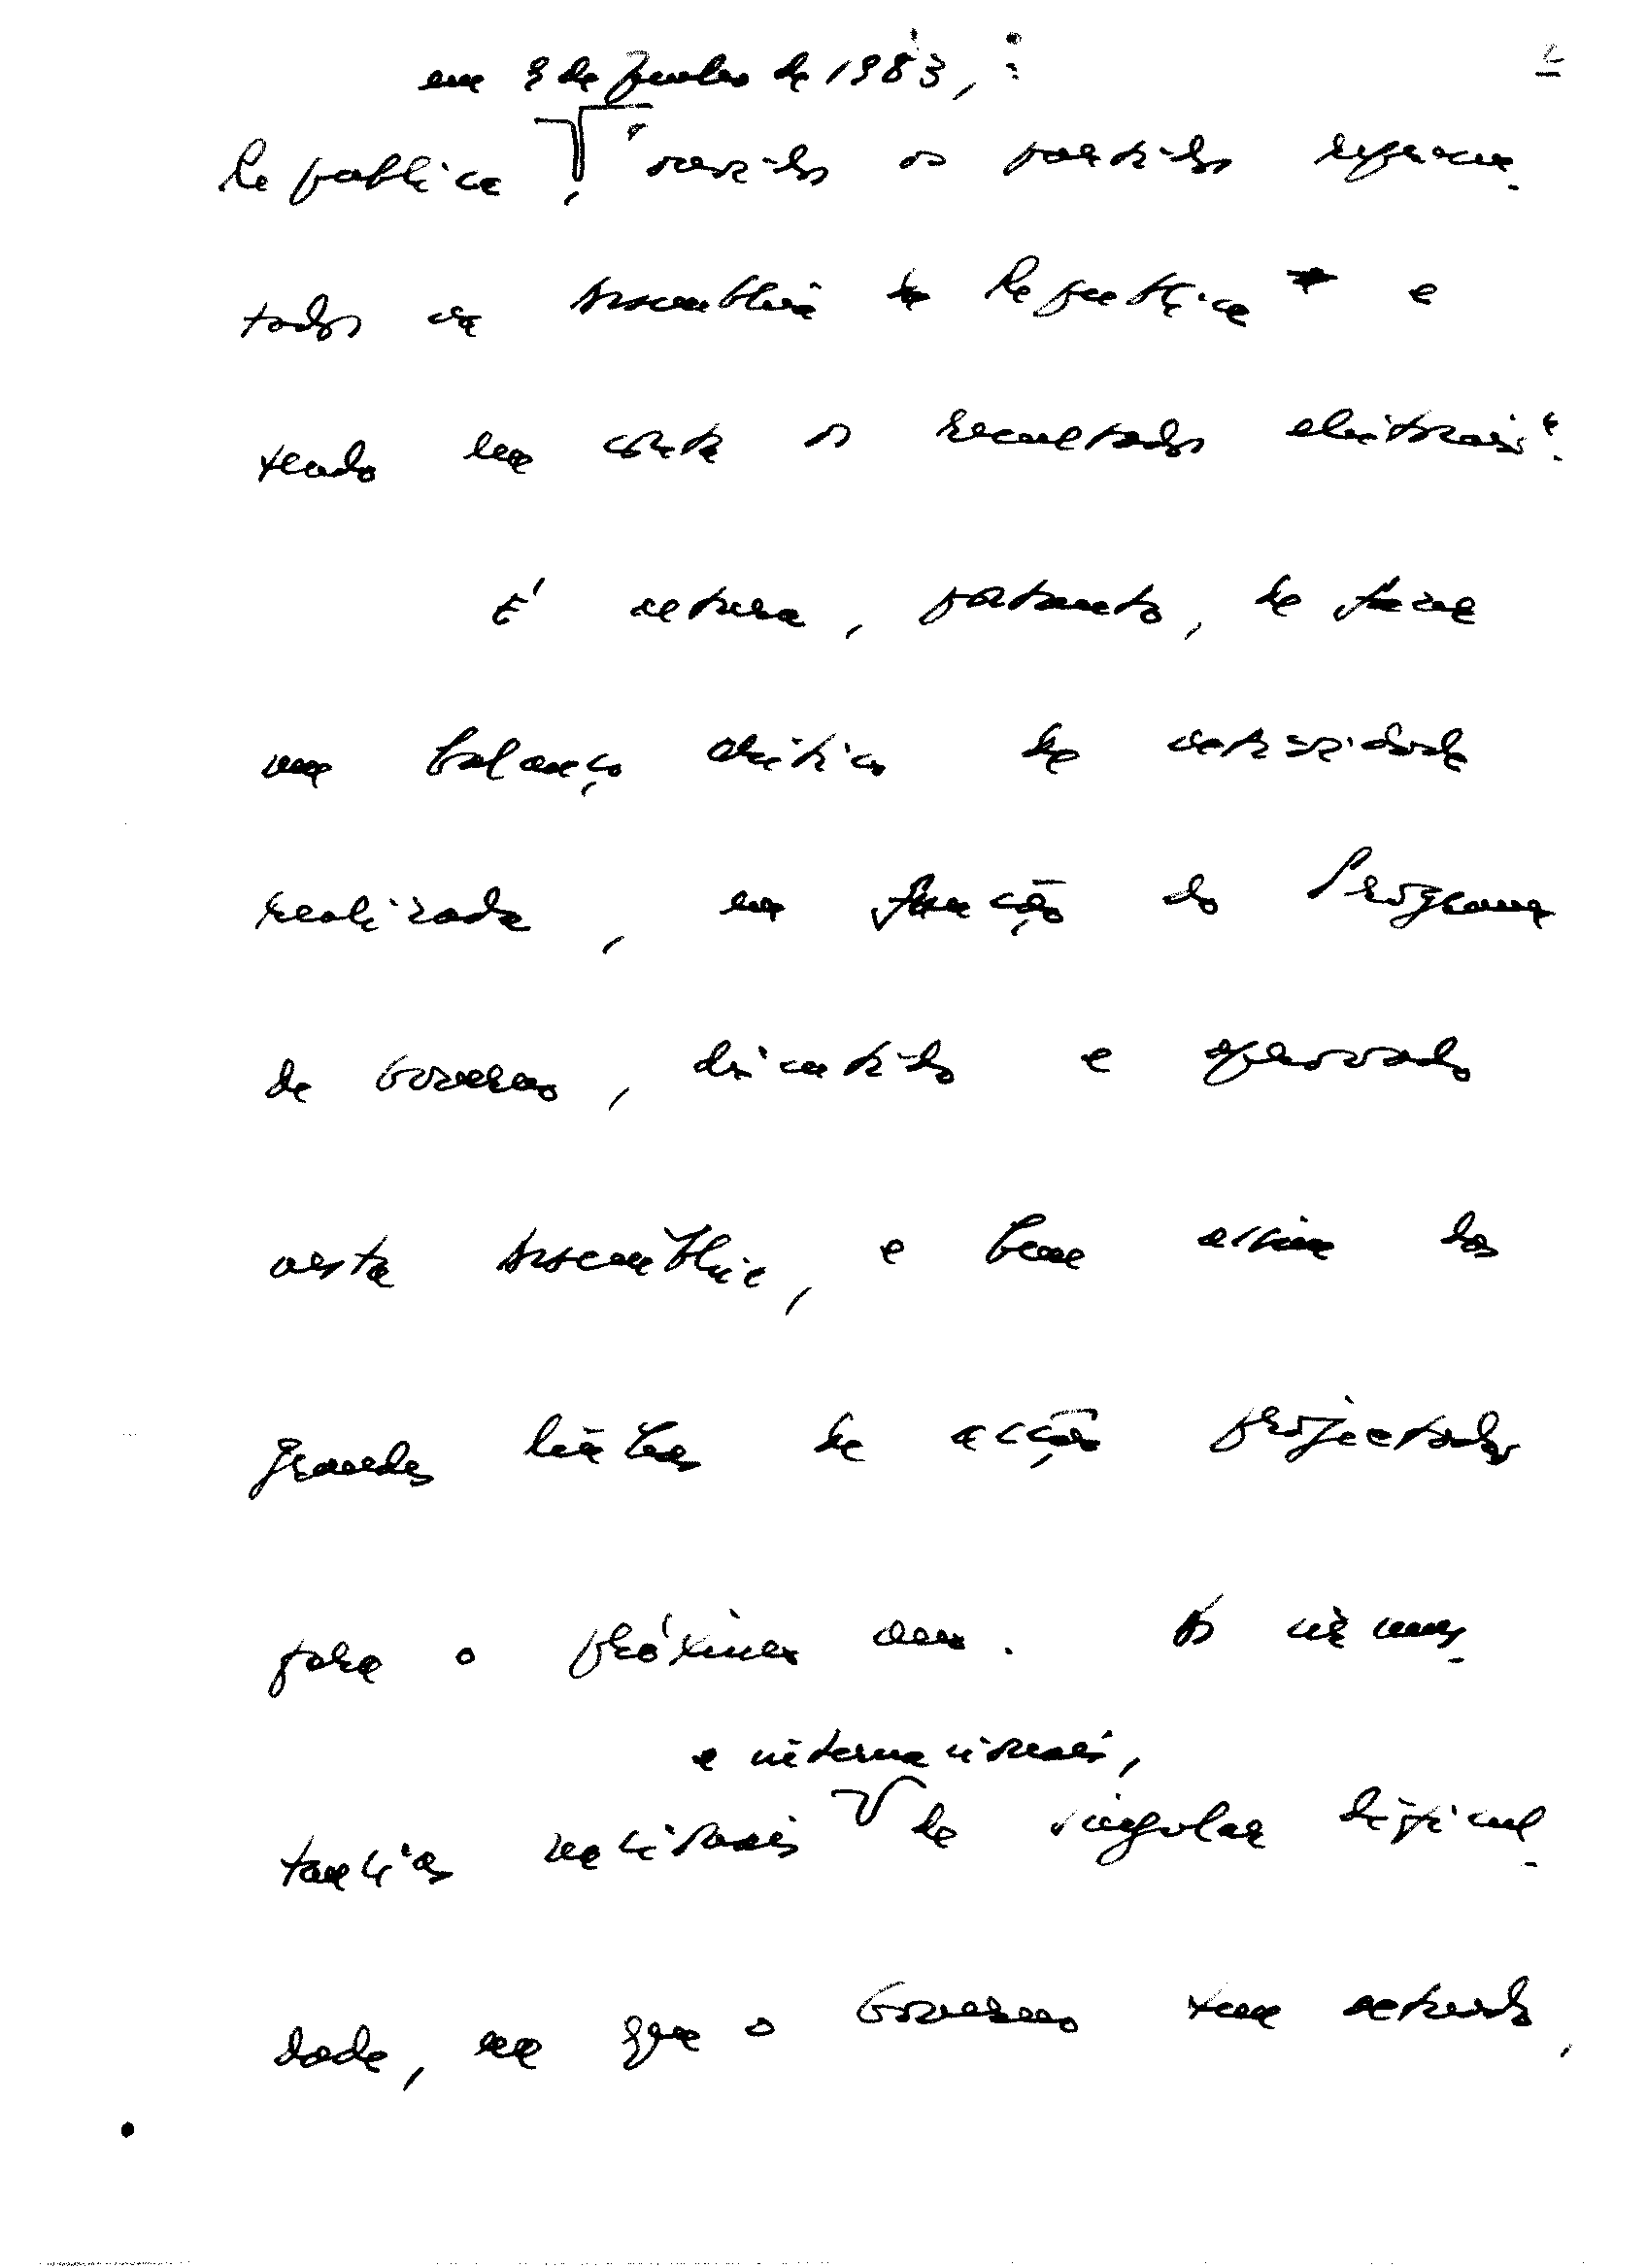 em 9 de Junho de 1983,
República, ouvidos os partidos represen-
tados na Assembleia da República e
tendo em conta os resultados eleitorais".
É altura, portanto, de fazer
um balanço crítico da actividade
realizada, em função do Programa
de Governo, discutido e aprovado
nesta Assembleia, e bem assim das
grandes linhas de acção projectadas
para o próximo ano. As circuns-
e internacionais,
tancias nacionais de singular dificul-
dade, em que o Governo tem actuado,